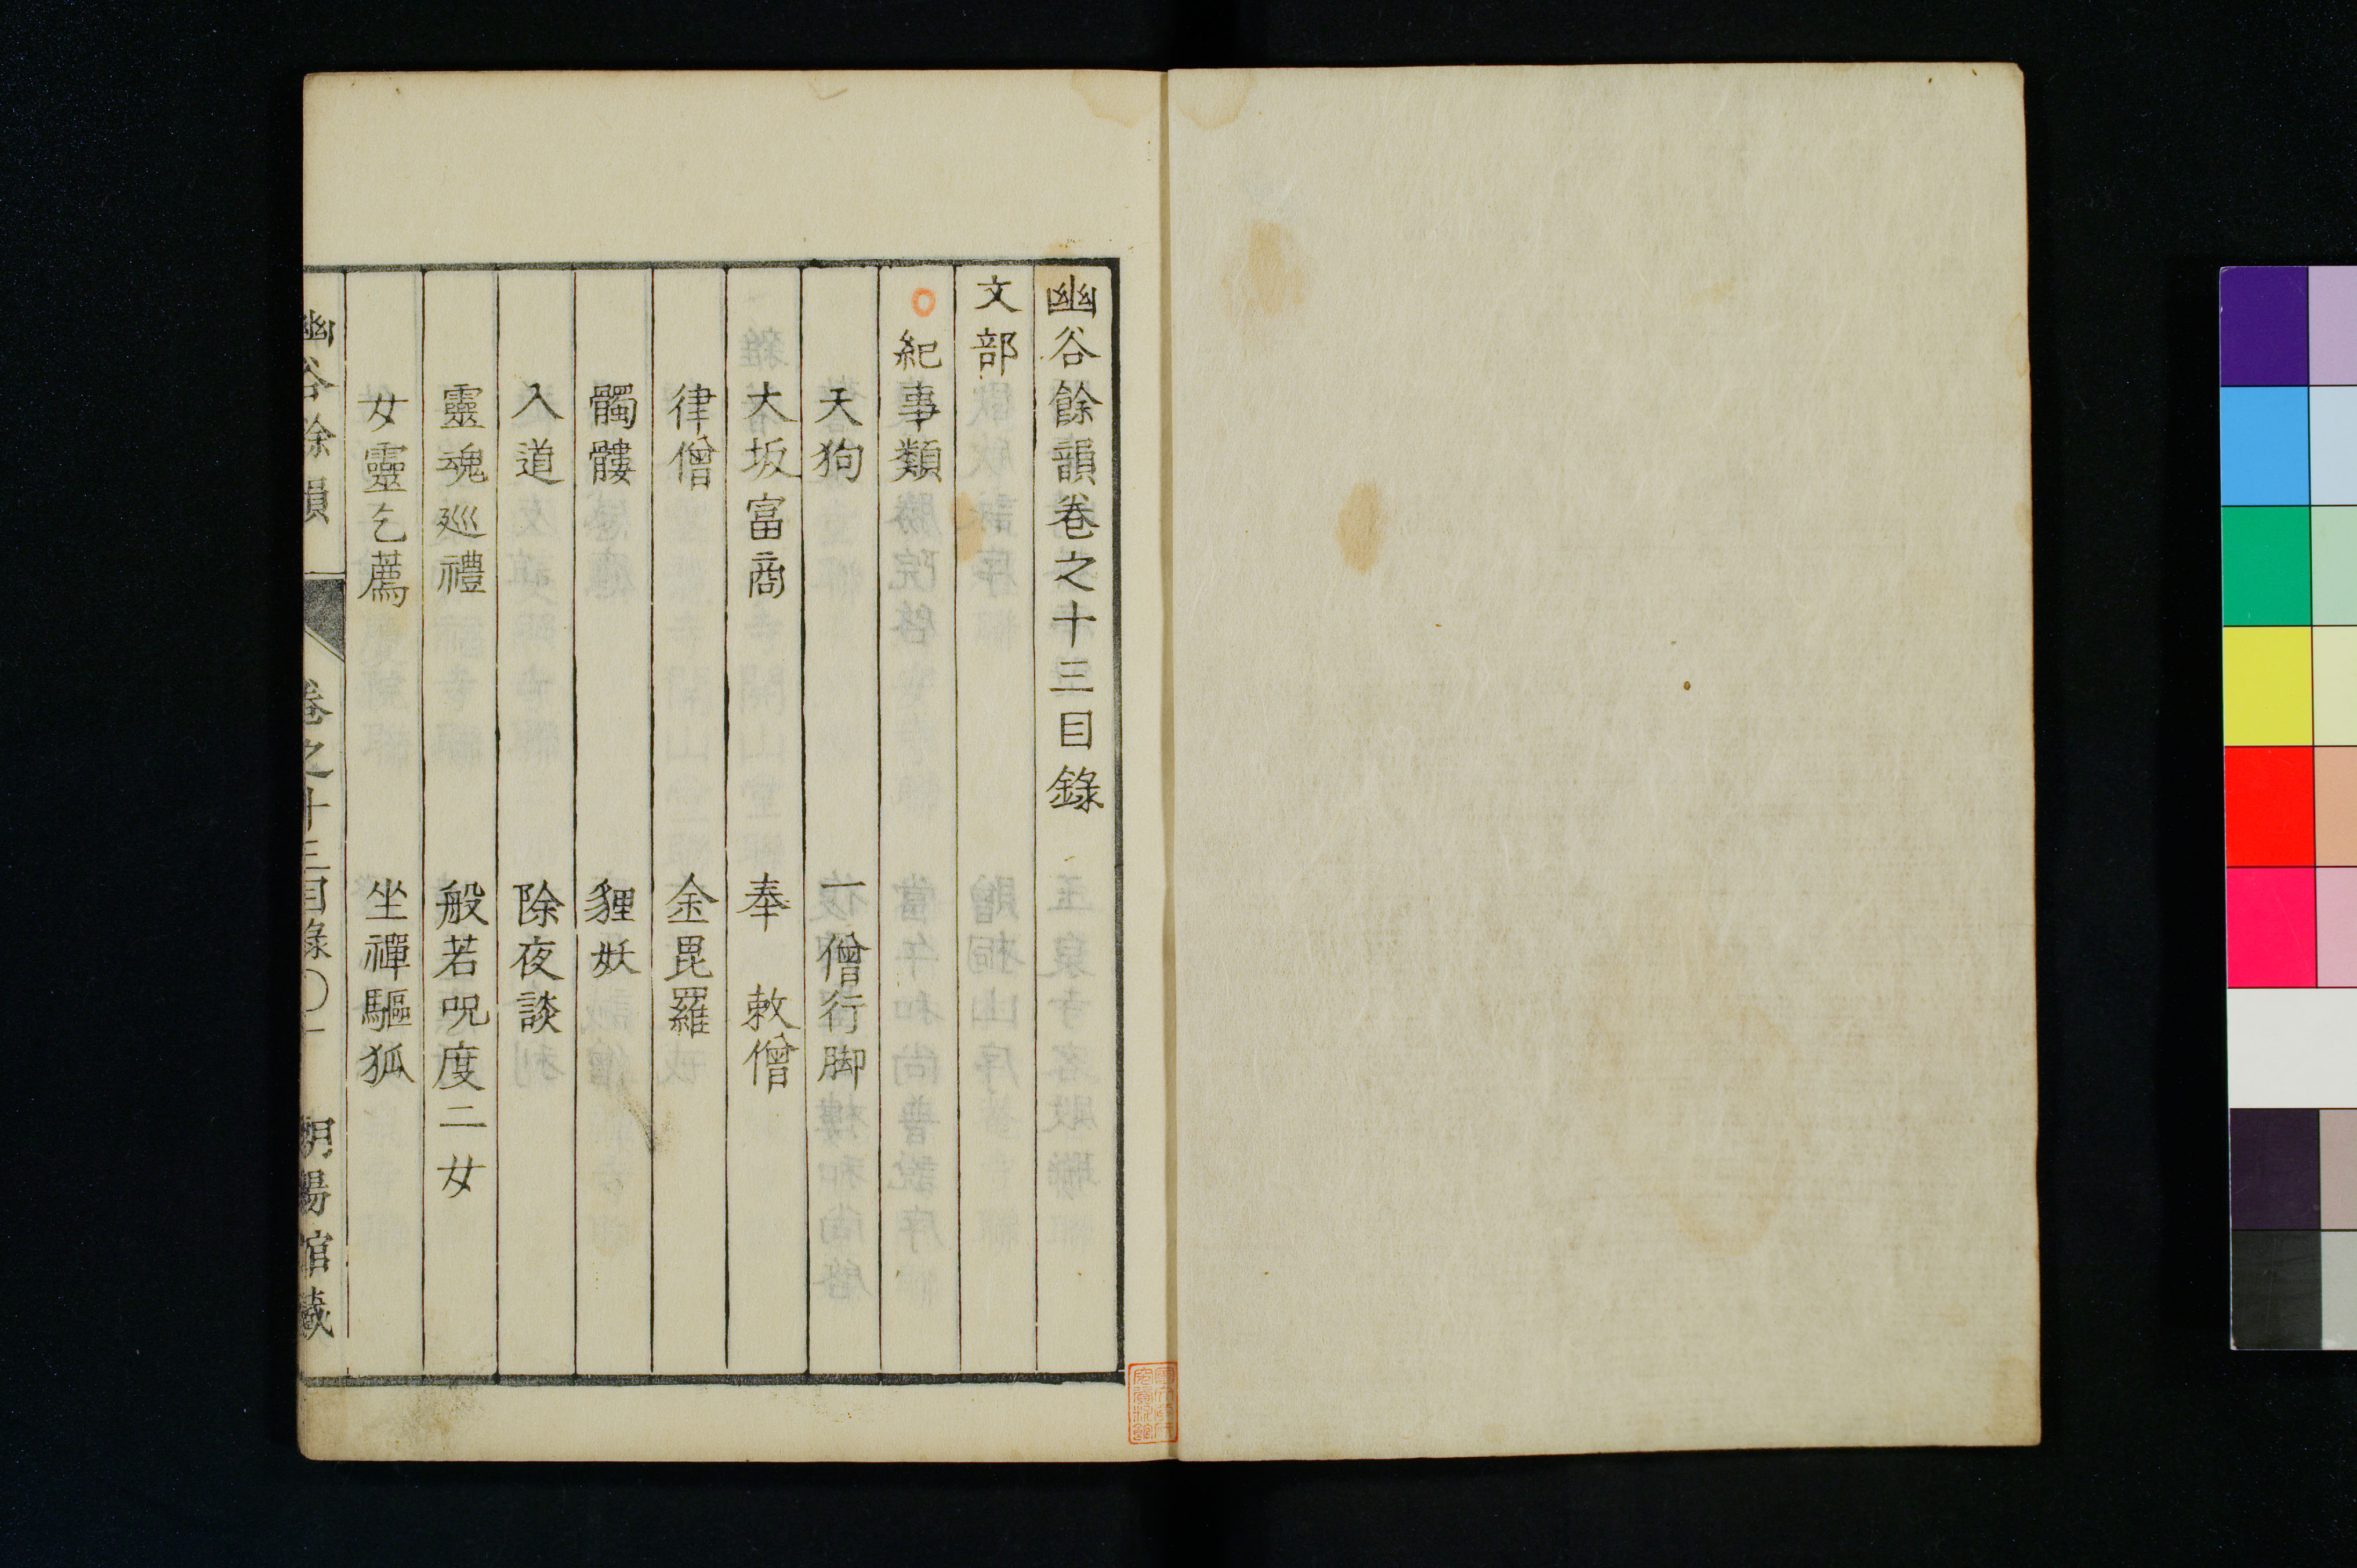 幽谷餘韻卷之十三目錄
文部
紀事類
天狗 一僧行脚
大坂富商 奉 敕僧
律僧 金毘羅
髑髏 貍妖
入道 除夜談
靈魂廵禮 般若呪度二女
女靈乞薦 坐禪驅狐
幽谷餘韻 卷之十三目錄〇一 朝陽館藏